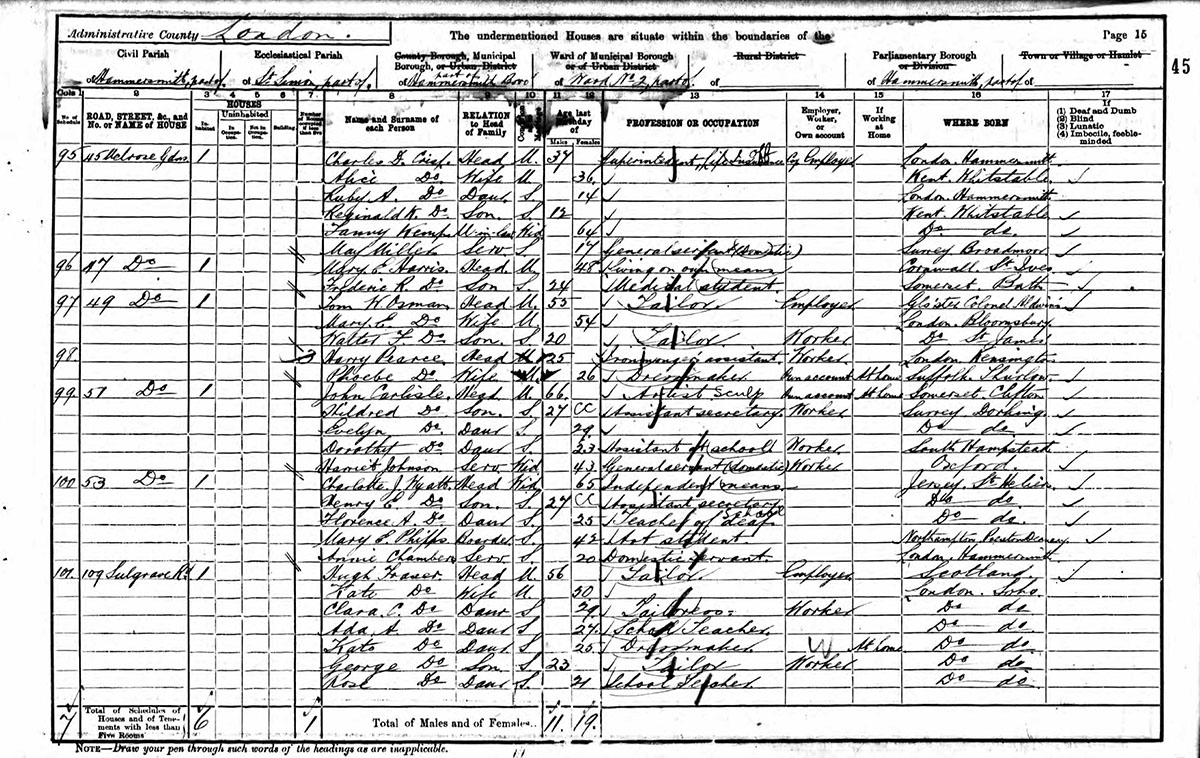 Administrative County London.
The undermentioned Houses are situate within the boundaries of the
Page 15
45
Civil Parish
Ecclesiastical Parish
County Borough, Municipal Borough, or Urban District
Ward of Municipal Borough or of Urban District
Rural District
Parliamentary Borough or Division
Town or Village or Hamlet
of Hammersmith, part of
of part of
of part of Hammersmith Boro
of Ward No 2, part of
of
of Hammersmith, part of
of
Cols 1 2 3 4 5 6 7 8 9 10 11 12 13 14 15 16 17
No. of Schedule
ROAD, STREET, &c., and No. or NAME of HOUSE
HOUSES
Inhabited
Uninhabited
In Occupation.
Not in Occupation.
Building.
Number of Rooms occupied if less than five
Name and Surname of each Person
RELATION to Head of Family
Condition as to Marriage
Age last Birthday of
Males Females
PROFESSION OR OCCUPATION
Employer, Worker, or Own account
If Working at Home
WHERE BORN
If (1) Deaf and Dumb (2) Blind (3) Lunatic (4) Imbecile, feeble-minded
95 45 Melrose Gdns 1 Charles Crisp Head M. 37 Superintendent, Life Insurance Cy Employer London. Hammersmith
Alice Do Wife M 36 Kent. Whitstable
Ruby A. Do Daur S. 14 London. Hammersmith
Reginald K. Do Son. S. 12 Kent. Whitstable
Fanny Kemp M-in-law Wid 64 Do do.
May Miller Serv S. 17 General servant (Domestic) Surrey
96 47 Do 1 Mary E. Harris. Head M 48 Living on own means Cornwall. St Ives
Frederic R. Do Son S. 24 Medical student. Somerset. Bath
97 49 Do 1 Tom W. Osman Head M 55 Tailor Employer
Mary E. Do Wife M. 54 London. Bloomsbury.
Walter F. Do Son. S. 20 Tailor Worker Do St James
98 3 Harry Pearce Head M 25 Ironmonger's assistant. Worker London Kensington
Phoebe Do Wife M. 26 Dressmaker Own account At home Suffolk. Thurlow
99 51 Do 1 John Carlisle. Head M. 66 Artist Sculp Own account At home Somerset. Clifton
Hildred Do Son. S. 27 CC Assistant secretary Worker Surrey Dorking.
Evelyn Do Daur S. 29 Do do.
Dorothy Do Daur S. 23 Assistant at school Worker South Hampstead
Harriet Johnson Serv. Wid 43 General servant (domestic) Worker Oxford.
100 53 Do 1 Charlotte J. Hyatt Head Wid 65 Independent means Jersey St Helier
Henry E. Do Son. S. 27 CC Assistant secretary Do do.
Florence A. Do Daur S. 25 Teacher of deaf School Do do.
Mary E. Phipps Boarder S. 42 Art student Northampton
Annie Chambers Serv. S. 20 Domestic servant. London, Hammersmith
101 109 Sulgrave Rd 1 Hugh Fraser Head M. 56 Tailor Employer Scotland
Kate Do Wife M 50 London. Soho.
Clara C. Do Daur S. 29 Tailoress Worker Do do
Ada A. Do Daur S. 27. School Teacher Do do
Kate Do Daur S. 25 Dressmaker W At home Do do
George Do Son S. 23 Tailor Worker Do do
Rose Do Daur S. 21 School Teacher Do do
7 Total of Schedules of Houses and of Tenements with less than Five Rooms 6 1 Total of Males and of Females.. 11. 19.
NOTE—Draw your pen through such words of the headings as are inapplicable.